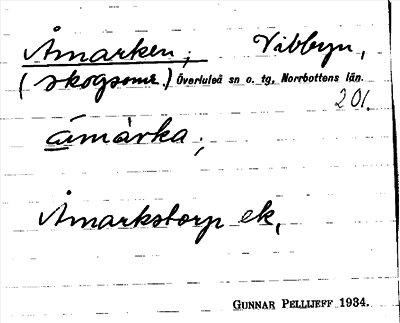 Åmarken; Vibbyn,
(skogsomr.) Överluleå sn o. tg, Norrbottens län.
201.
åmàrka;
Åmarkstorp ek,
GUNNAR PELLIJEFF 1934.